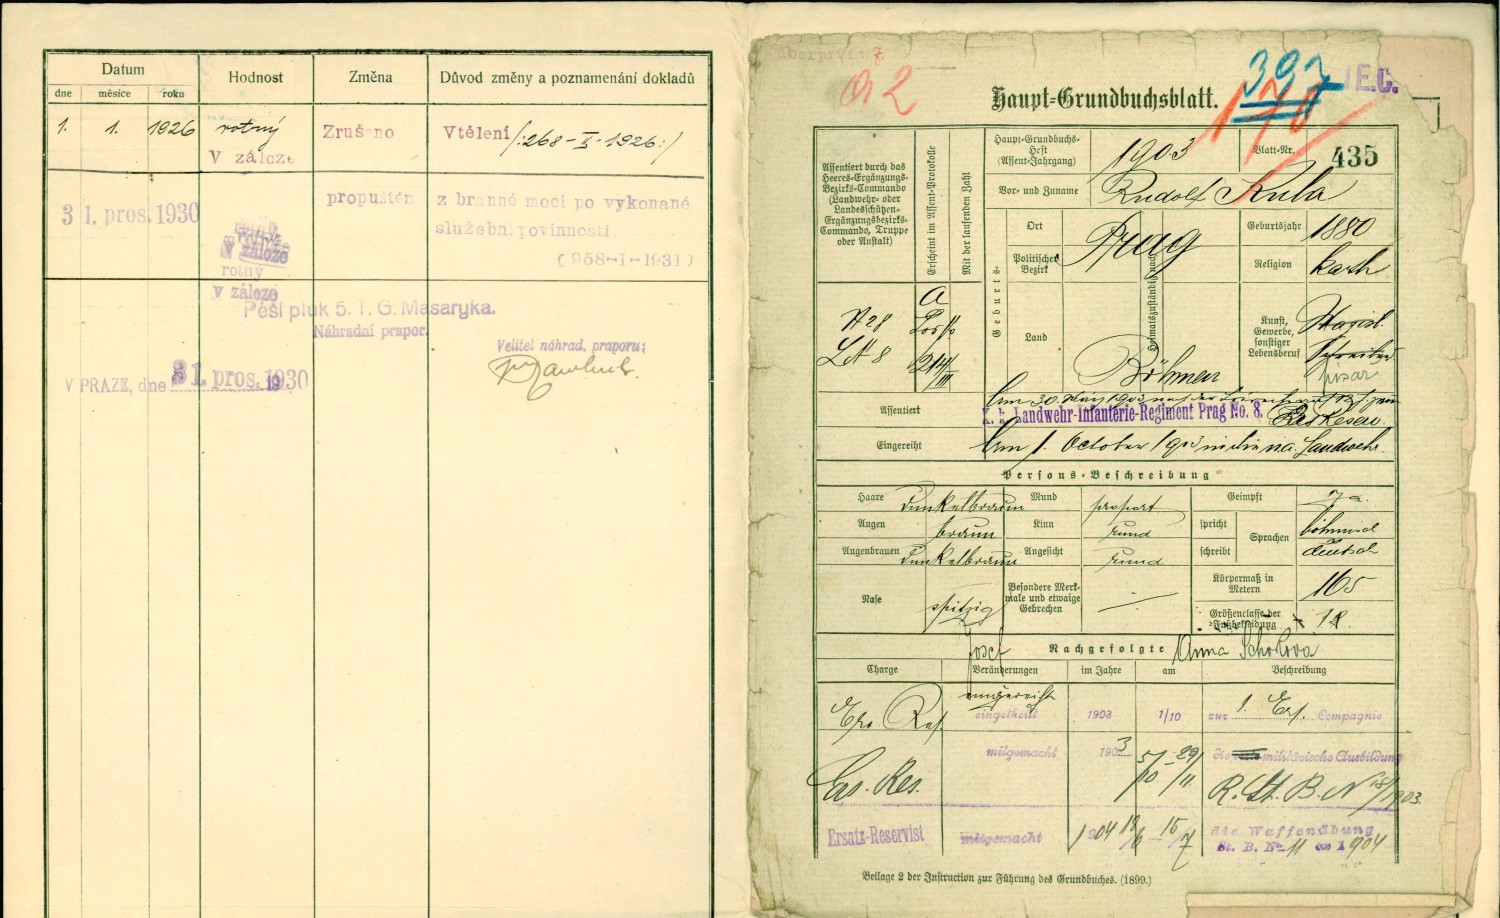 Datum
Hodnost
Změna
Důvod změny a poznamenání dokladů
dne měsíce roku
1. 1. 1926
rotný
v záloze
Zrušeno
Vtělení (:268-X-1926:)
31. pros. 1930
rotný
v záloze
propuštěn
z branné moci po vykonané
služební povinnosti
(958-I-1931)
Pěší pluk 5. T. G. Masaryka.
Náhradní prapor.
Velitel náhrad. praporu:
V PRAZE, dne 31. pros. 1930
Haupt-Grundbuchsblatt.
Assentiert durch das
Heeres-Ergänzungs-
Bezirks-Commando
(Landwehr- oder
Landesschützen-
Ergänzungsbezirks-
Commando, Truppe
oder Anstalt)
Erscheint im Assent-Protokolle
Mit der laufenden Zahl
Haupt-Grundbuchs-
Heft
(Assent-Jahrgang)
1903
Blatt-Nr.
435
Vor- und Zuname
Rudolf Kuba
Geburts-
Ort
Prag
Politischer
Bezirk
Land
Böhmen
Heimatszuständig nach
Geburtsjahr
1880
Religion
kath.
Kunst,
Gewerbe,
sonstiger
Lebensberuf
Schreiber
písař
A
Assentiert
K. k. Landwehr-Infanterie-Regiment Prag No. 8.
Eingereiht
Am 1. October 1903 in die n.a. Landwehr.
Persons-Beschreibung
Haare
dunkelbraun
Mund
proport
Geimpft
Ja
Augen
braun
Kinn
rund
spricht
schreibt
Sprachen
böhmisch
deutsch
Augenbrauen
dunkelbraun
Angesicht
rund
Nase
spitzig
Besondere Merk-
male und etwaige
Gebrechen
Körpermaß in
Metern
165
Größenclasse der
Fußbekleidung
12.
Josef
Nachgefolgte
Anna
Charge
Veränderungen
im Jahre
am
Beschreibung
Ers. Res.
eingereiht
eingetheilt
1903
1/10
zur 1. Ers. Compagnie
mitgemacht
1903
5/10 - 29/11
die militärische Ausbildung
Ers. Res.
R. St. B. N 18/1903.
Ersatz-Reservist
mitgemacht
1904
18/6 - 15/7
die Waffenübung
St. B. No 11 ex 1904
Beilage 2 der Instruction zur Führung des Grundbuches. (1899.)